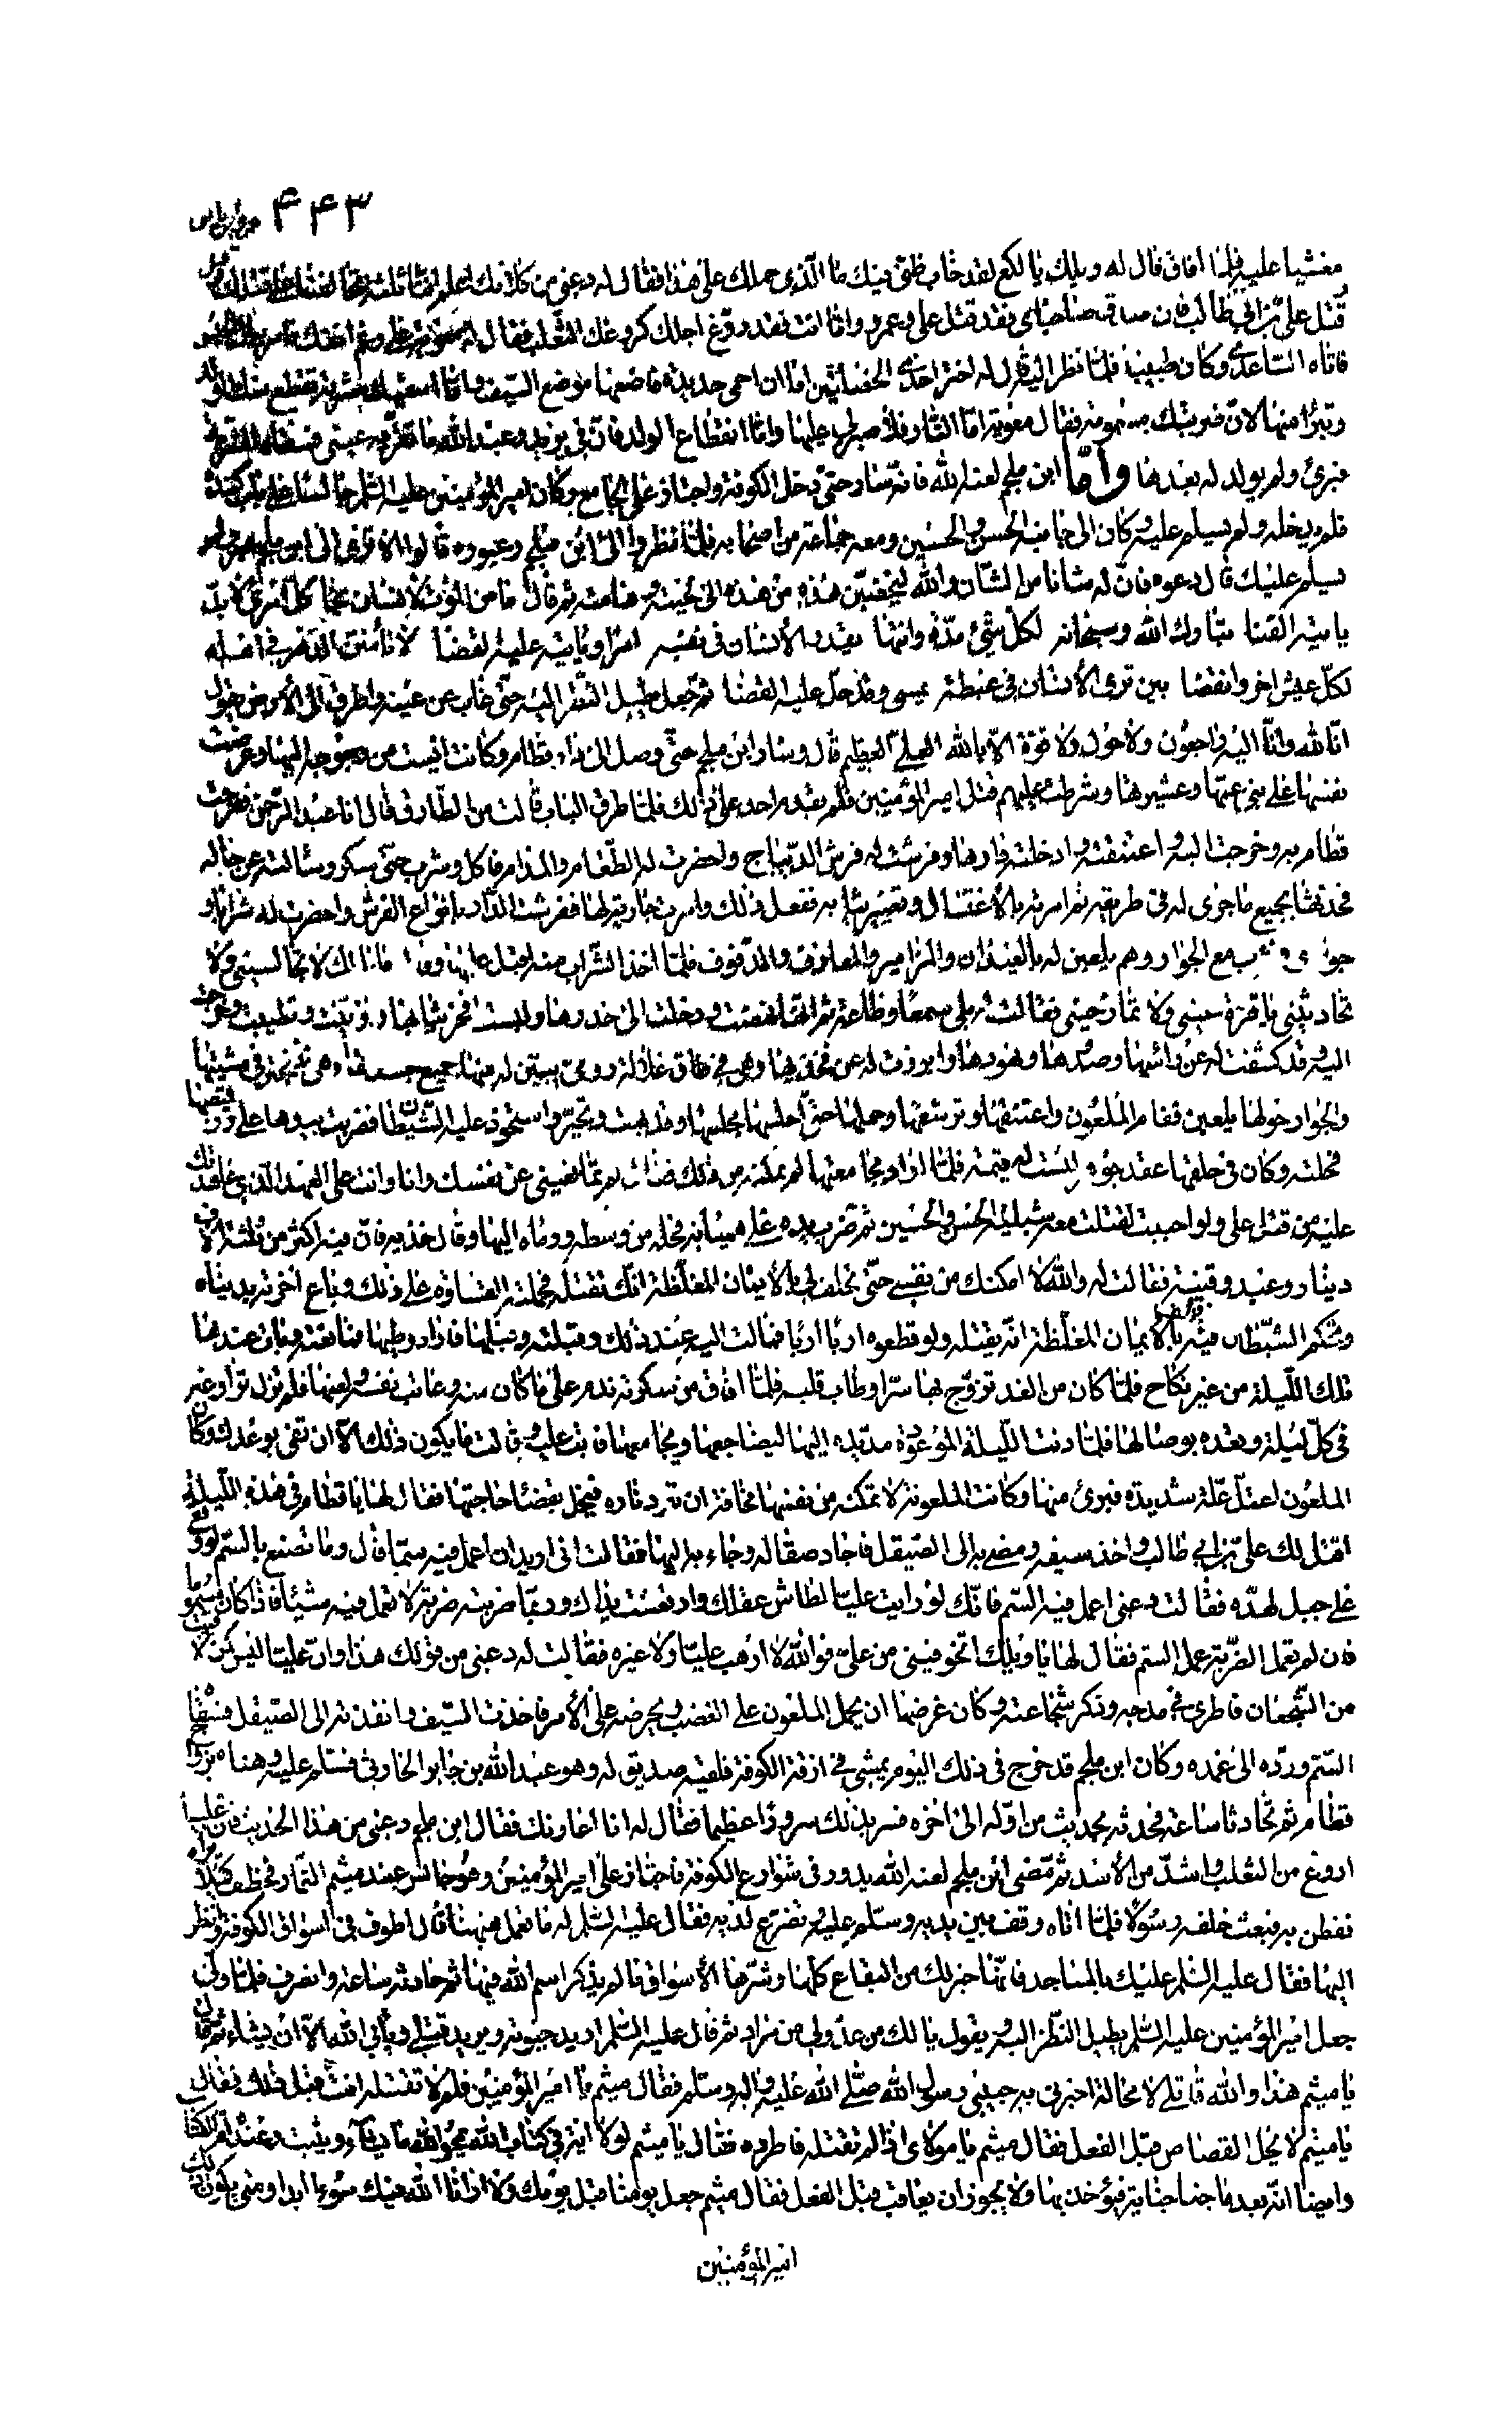 ۴۴۳
مغشيا عليه فلما افاق قال له ويلك يا لكع لقد خاب ظنى فيك ما الذى حملك على هذا فقال له دعنى من كلامك
قتل على بن ابى طالب فان صدق صاحباى فقد قتل على وعمرو واما انت فقد روغ اجلك كروغك الثعلب فقال له
فاتاه الساعدى وكان طبيبا فلما نظر اليه قال له اختر احدى الخصلتين اما ان احمى حديدة فاضعها موضع السيف واما اسقيك شربة تقطع منك الولد
وتبرأ منها لان ضربتك مسمومة فقال معوية اما النار فلا صبر لى عليها واما انقطاع الولد فان فى يزيد وعبد الله ما تقر به عينى فسقاه الشربة
فبرئ ولم يولد له بعدها واما ابن ملجم لعنه الله فانه سار حتى دخل الكوفة واجتاز على الجامع وكان امير المؤمنين عليه السلم جالسا على باب كندة
فلم يدخله ولم يسلم عليه وكان الى جانبه الحسن والحسين ومعه جماعة من اصحابه فلما نظروا الى ابن ملجم وعبوره قالوا الا ترى الى ابن ملجم عبر ولم
يسلم عليك قال دعوه فان له شانا من الشان والله ليخضبن هذه من هذه الى لحيته وهامته ثم قال ما من الموت لانسان نجا كل امرئ لا بد
ياتيه الفنا تبارك الله وسبحانه لكل شئ مدة وانتها يقدر الانسان فى نفسه امرا وياتيه عليه القضا لا تأمنن الدهر فى اهله
لكل عيش اخر وانقضا بين ترى الانسان فى غبطة يمسى وقد حل عليه القضا ثم جعل يطيل النظر اليه حتى غاب عن عينه واطرق الى الارض يقول
انا لله وانا اليه راجعون ولا حول ولا قوة الا بالله العلى العظيم قال وسار ابن ملجم حتى وصل الى دار قطام وكانت ايست من رجوعه اليها وعرضت
نفسها على بنى عمها وعشيرتها وشرطت عليهم قتل امير المؤمنين فلم يقدم احد على ذلك فلما طرق الباب قالت من الطارق قال انا عبد الرحمن ففرحت
قطام به وخرجت اليه واعتنقته وادخلته دارها وفرشت له فرش الديباج واحضرت له الطعام والمدام فاكل وشرب حتى سكر وسألته عن حاله
فحدثها بجميع ما جرى له فى طريقه ثم امرته بالاغتسال وتغيير ثيابه ففعل ذلك وامرت جارية لها ففرشت الدار بانواع الفرش واحضرت له شرابا و
جوارى مع الجوار وهم يلعبن له بالعيدان والمزامير والمعازف والدفوف فلما اخذ الشراب منه اقبل عليها وقال ما بالك لا تجالسينى ولا
تحادثينى يا قرة عينى ولا تمازحينى فقالت له بلى سمعا وطاعة ثم انها نهضت ودخلت الى خدرها ولبست افخر ثيابها وتزينت وتطيبت وخرجت
اليه وقد كشفت له عن رأسها وصدرها ونهودها وابرزت له عن فخذيها وهى فى طاق غلالة رومى يبين له منها جميع جسدها وهى تتبختر فى مشيتها
والجوار حولها يلعبن فقام الملعون واعتنقها وترشفها وحملها حتى اجلسها مجلسها وقد بهت وتحير واستحوذ عليه الشيطان فضربت بيدها على زر قميصها
فحلته وكان فى حلقها عقد جوهر ليست له قيمة فلما اراد مجامعتها لم تمكنه من ذلك فقال لم تمانعينى عن نفسك وانا وانت على العهد الذى عاهدتك
عليه من قتل على ولو احببت لقتلت معه شبليه الحسن والحسين ثم ضرب يده على هميانه فحله من وسطه ورماه اليها وقال خذيه فان فيه اكثر من ثلثة الاف
دينار وعبد وقينة فقالت له والله لا امكنك من نفسى حتى تحلف لى بالايمان المغلظة انك تقتله فحملته القساوة على ذلك وباع اخرته بدنياه
وتحكم الشيطان فيه بالايمان المغلظة انه يقتله ولو قطعوه اربا اربا فمالت اليه عند ذلك وقبلته وقبلها فاراد وطيها فمانعته وبات عندها
تلك الليلة من غير نكاح فلما كان من الغد تزوج بها سرا وطاب قلبه فلما افاق من سكرته ندم على ما كان منه وعاتب نفسه ولعنها فلم تزل تراوغه
فى كل ليلة وتعده بوصالها فلما دنت الليلة الموعودة مد يده اليها ليضاجعها ويجامعها فابت عليه وقالت ما يكون ذلك الا ان تفى بوعدك وكان
الملعون اعتل علة شديدة فبرئ منها وكانت الملعونة لا تمكنه من نفسها مخافة ان تبرد ناره فيخل بقضاء حاجتها فقال لها يا قطام فى هذه الليلة
اقتل لك على بن ابى طالب واخذ سيفه ومضى به الى الصيقل فاجاد صقاله وجاء به اليها فقالت انى اريد ان اعمل فيه سما قال وما تصنع بالسم لو وقع
على جبل لهده فقالت دعنى اعمل فيه السم فانك لو رايت عليا لطاش عقلك وارتعشت يداك وربما ضربته ضربة لا تعمل فيه شيئا فاذا كان مسموما
فان لم تعمل الضربة عمل السم فقال لها يا ويلك اتخوفينى من على فوالله لا ارهب عليا ولا غيره فقالت له دعنى من قولك هذا وان عليا ليس كمن لاقيت
من الشجعان فاطرت فى مدحه وذكر شجاعته وكان غرضها ان يحمل الملعون على الغضب ويحرضه على الامر فاخذت السيف وانفذته الى الصيقل فسقاه
السم ورده الى غمده وكان ابن ملجم قد خرج فى ذلك اليوم يمشى فى ازقة الكوفة فلقيه صديق له وهو عبد الله بن جابر الحارثى فسلم عليه وهناه بزواج
قطام ثم تحادثا ساعة فحدثه بحديثه من اوله الى اخره فسر بذلك سرورا عظيما فقال له انا اعاونك فقال ابن ملجم دعنى من هذا الحديث فان عليا
اروغ من الثعلب واشد من الاسد ثم مضى ابن ملجم لعنه الله يدور فى شوارع الكوفة فاجتاز على امير المؤمنين وهو جالس عند ميثم التمار فخطف كيلا يراه
ففطن به فبعث خلفه رسولا فلما اتاه وقف بين يديه وسلم عليه وتضرع لديه فقال عليه السلم له ما تعمل هيهنا قال اطوف فى اسواق الكوفة وانظر
اليها فقال عليه السلم عليك بالمساجد فانها خير لك من البقاع كلها وشرها الاسواق ما لم يذكر اسم الله فيها ثم حادثه ساعة وانصرف فلما ولى
جعل امير المؤمنين عليه السلم يطيل النظر اليه ويقول يا لك من عدو لى من مراد ثم قال عليه السلم اريد حيوته ويريد قتلى ويأبى الله الا ان يشاء ثم قال
يا ميثم هذا والله قاتلى لا محالة اخبرنى به حبيبى رسول الله صلى الله عليه واله وسلم فقال ميثم يا امير المؤمنين فلم لا تقتله انت قبل ذلك فقال
يا ميثم لا يحل القصاص قبل الفعل فقال ميثم يا مولاى اذا لم تقتله فاطرده فقال يا ميثم لولا اية فى كتاب الله يمحو الله ما يشاء ويثبت وعنده ام الكتاب
وايضا انه بعد ما جنا جناية فيؤخذ بها ولا يجوز ان يعاقب قبل الفعل فقال ميثم جعل يومنا قبل يومك ولا ارانا الله فيك سوءا ابدا ومتى يكون ذلك
امير المؤمنين